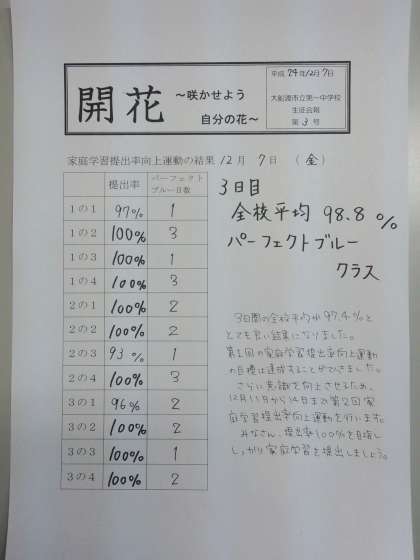 開花
～咲かせよう
自分の花～
平成24年12月7日
大船渡市立第一中学校
生徒会報
第3号
家庭学習提出率向上運動の結果 12月 7日 (金)
提出率 パーフェクトブルー日数
1の1 97% 1
1の2 100% 3
1の3 100% 1
1の4 100% 3
2の1 100% 2
2の2 100% 2
2の3 93% 1
2の4 100% 3
3の1 96% 2
3の2 100% 2
3の3 100% 1
3の4 100% 2
3日目
全校平均 98.8%
パーフェクトブルー
クラス
3日間の全校平均が97.4%と
とても良い結果になりました。
第1回の家庭学習提出率向上運動
の目標は達成することができました。
さらに意識を向上させるため、
12月11日から14日まで第2回家
庭学習提出率向上運動を行います。
みなさん、提出率100%を目指し
しっかり家庭学習を提出しましょう。